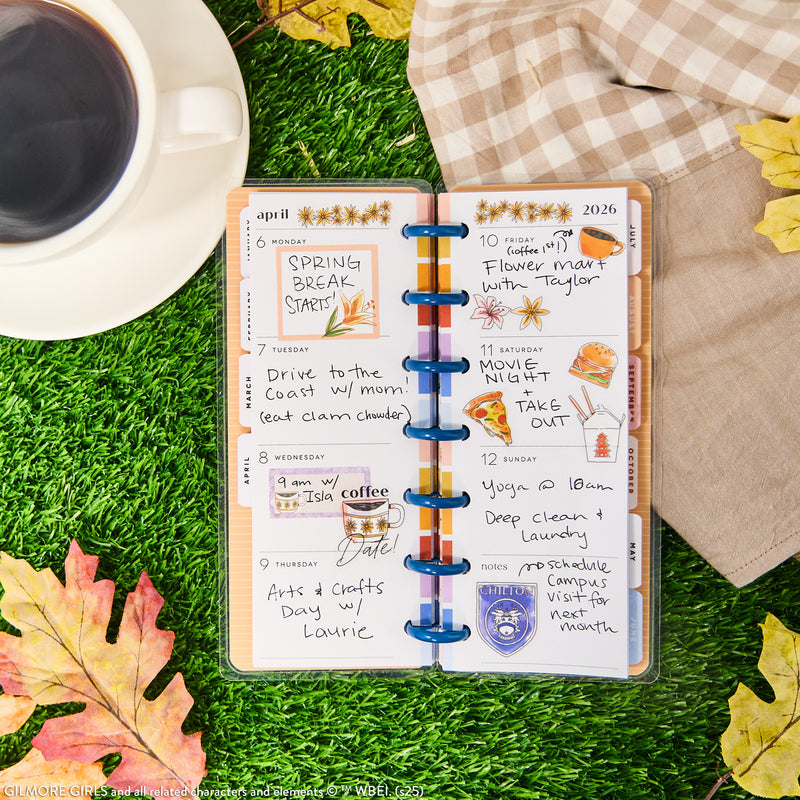 april
6 MONDAY
SPRING
BREAK
STARTS!
7 TUESDAY
Drive to the
Coast w/ mom!
(eat clam chowder)
8 WEDNESDAY
9 am w/
Isla
coffee
Date!
9 THURSDAY
Arts & Crafts
Day w/
Laurie
2026
10 FRIDAY
(coffee 1st!)
Flower mart
with Taylor
11 SATURDAY
MOVIE
NIGHT
+
TAKE
OUT
12 SUNDAY
Yoga @ 10am
Deep clean &
Laundry
notes
schedule
Campus
visit for
next
month
CHILTON
JANUARY
FEBRUARY
MARCH
APRIL
JULY
AUGUST
SEPTEMBER
OCTOBER
MAY
JUNE
GILMORE GIRLS and all related characters and elements © ™ WBEI. (s25)